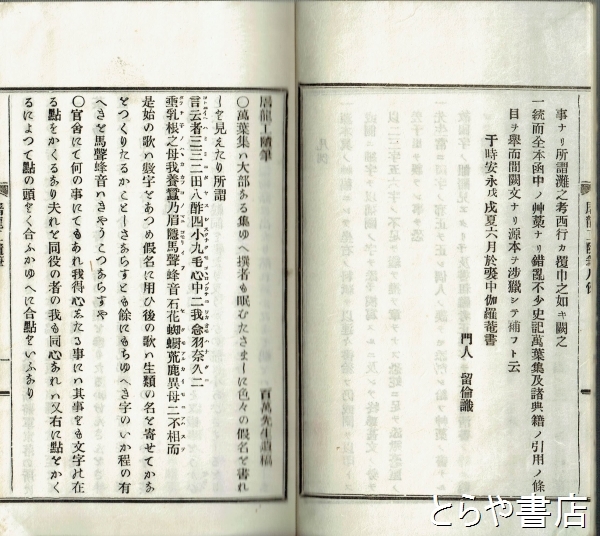 事ナリ所謂灘之考西行カ覆巾之如キ闕之
一統而全本函中ノ艸藁ナリ錯亂不少史記萬葉集及諸典籍ノ引用ノ條
目ヲ擧而間闕文ナリ源本ヲ涉獵シテ補フト云
于時安永戊戌夏六月於婺中伽羅菴書
門人 留倫識
屠龍工隨筆
百萬先生遺稿
〇萬葉集ハ大部ある集ゆへ撰者も眠むたさまーに色々の假名を書れ
しを見えたり所謂
言云者三三二田八酢四小九毛心中二我念羽奈久二
垂乳根之母我養蠶乃眉隱馬聲蜂音石花蜘蟵荒鹿異母二不相而
是始の歌ハ數字をあつめ假名に用ひ後の歌ハ生類の名を寄せてかあ
とつくりたるかことしさあらすとも餘にもちゆへき字のいか程の有
へきを馬聲蜂音のきやうこつあらすや
〇官舍にて何の事にてもあれ我得心ゑたる事にハ其事をも文字れ在
る點をかくるあり夫れと同役の者の我も同心あれハ又右に點をかく
るによつて點の頭をく合ふかゆへに合點をいふあり
とらや書店